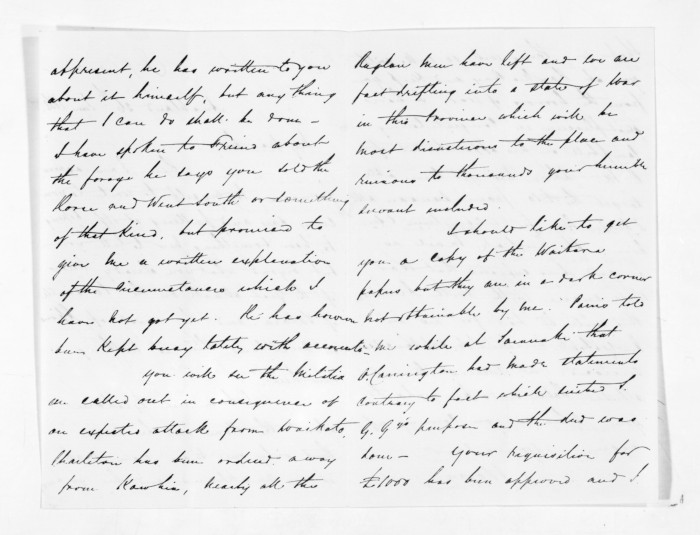 at present, he has written to you
about it himself, but any thing
that I can do shall be done –
I have spoken to Friend about
the forage he says you sold the
Horse and Went South or something
of that kind. but promised to
give me a written explanation
of the Circumstances which I
have not got yet. He has however
been kept busy lately with accounts –
you will see the Militia
are called out in consequence of
an expected attack from Waikato,
Charleton has been ordered away
from Kawhia, nearly all the
Raglan men have left and we are
fast drifting into a state of War
in this Province which will be
most disasterous to the place and
ruinous to thousands your humble
servant included.
I should like to get
you a copy of the Waitara
papers but they are in a dark corner
not obtainable by me. Parris told
me while at Taranaki that
O. Carrington had made statements
contrary to fact which suited S.
G. G's purpose and the deed was
done – Your requisition for
£1000 has been approved and I